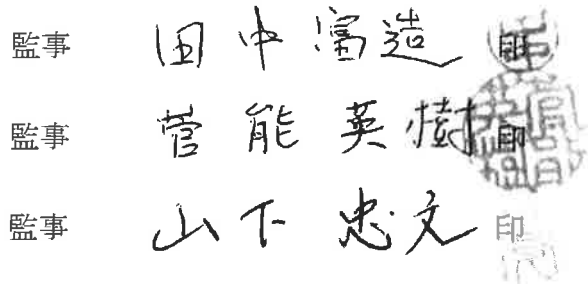 監事 田中富造 印
監事 菅能英樹 印
監事 山下忠文 印